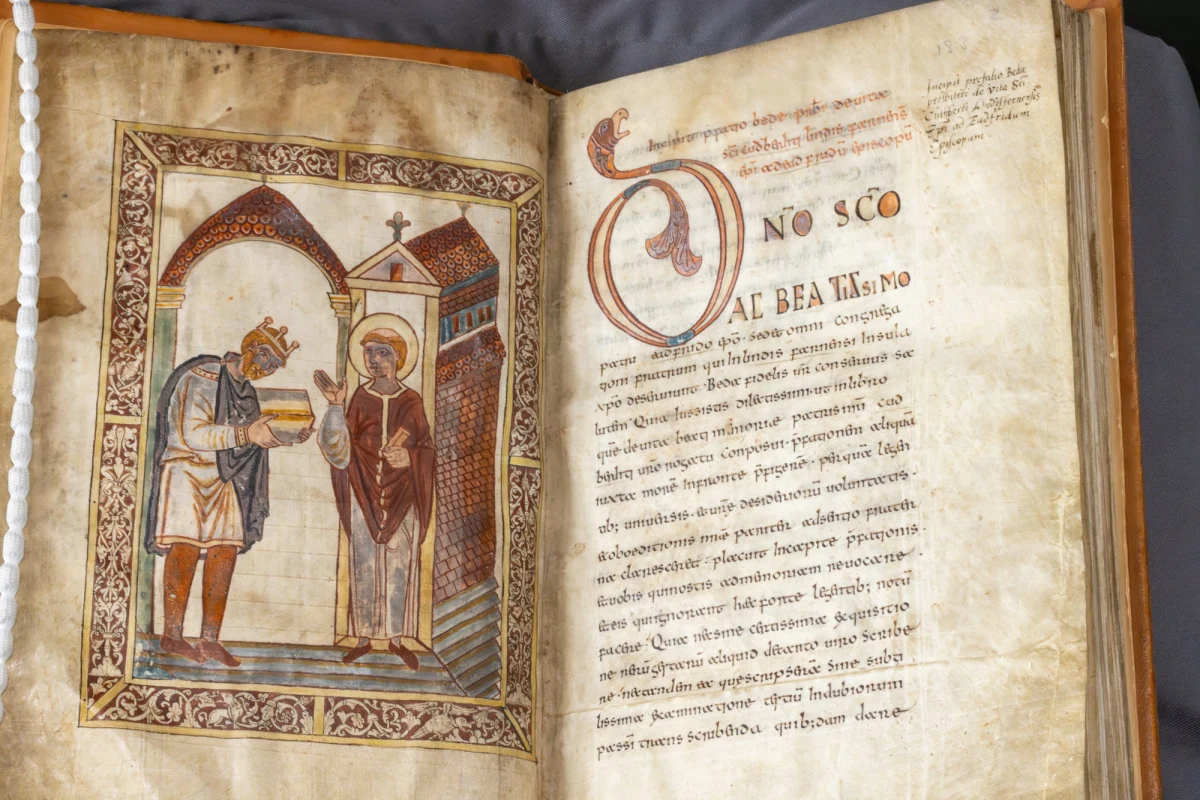 Incipit prefatio bede prb̄ de uita
sc̄i cudberhti lindis farnensis
ep̄i ad eadfridū episcopū
Incipit præfatio Beda
presbiteri de vita Sc̄i
Cuthberti Lindisfernensis
Ep̄i ad Eadfridum
Episcopum.
188
DN̄O SC̄O
AC BEATISSIMO
patri eadfrido ep̄o · sed et omni congrega
tioni fratrum qui In lindis farnensi Insula
xp̄o deseruiunt · Beda fidelis ur̄ conseruus sa
lutem · Quia Iussistis dilectissimi ut In libro
quē de uita beatę memoriæ patris nr̄i cud
berhti uro rogatu conposui · p̄fationem aliquā
Iuxta morē In fronte p̄figerē · per quā legen
tib; uniuersis · et urē desideriorū uoluntatis ·
et oboeditionis nr̄e pariter adsensio frater
na claresceret · placuit In capite p̄fationis ·
et uobis qui nostis ad memoriam reuocare ·
et eis qui ignorant hæc forte legentib; notū
facere · Quia nec sine certissima exquisitio
ne rerū gestarū aliquid de tanto uiro scribe
re · nec tandem ea quę scripseram sine subti
lissima examinatione testiū Indubiorum
passī transscribenda quibusdam dare